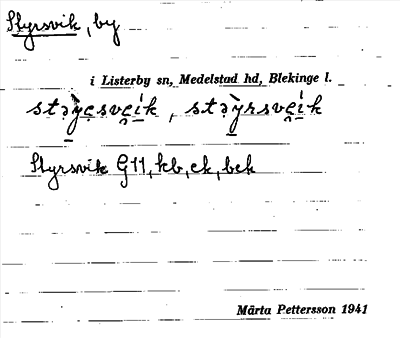 Styrsvik, by
i Listerby sn, Medelstad hd, Blekinge l.
Styrsvik G11, kb, ek, bek
Märta Pettersson 1941